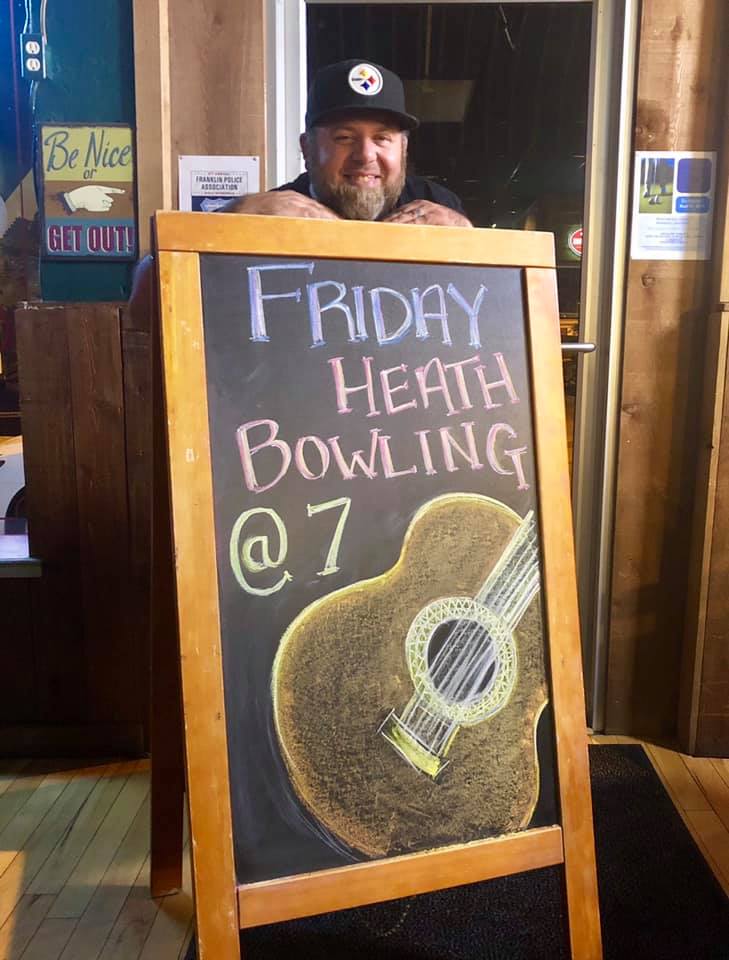 Be Nice
or
GET OUT!
FRANKLIN POLICE
ASSOCIATION
FRIDAY
HEATH
BOWLING
@ 7